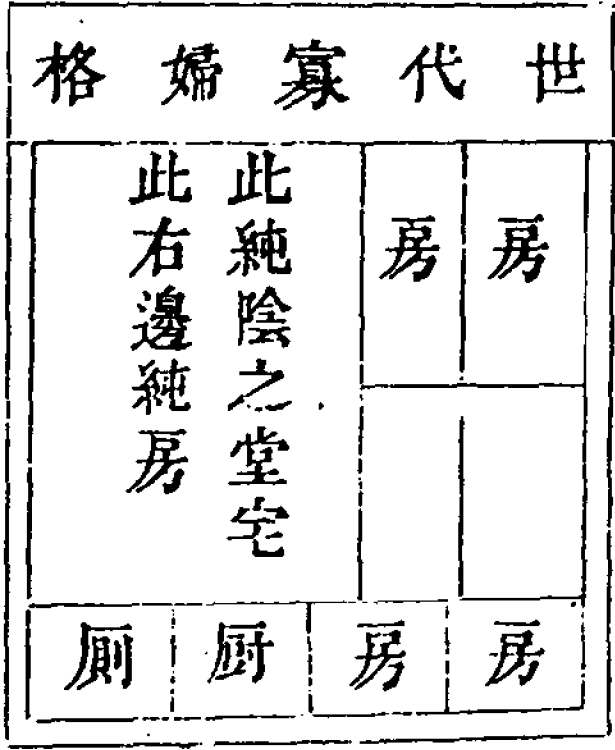 世代寡婦格
房
房
此純陰之堂宅
此右邊純房
房
房
厨
厠